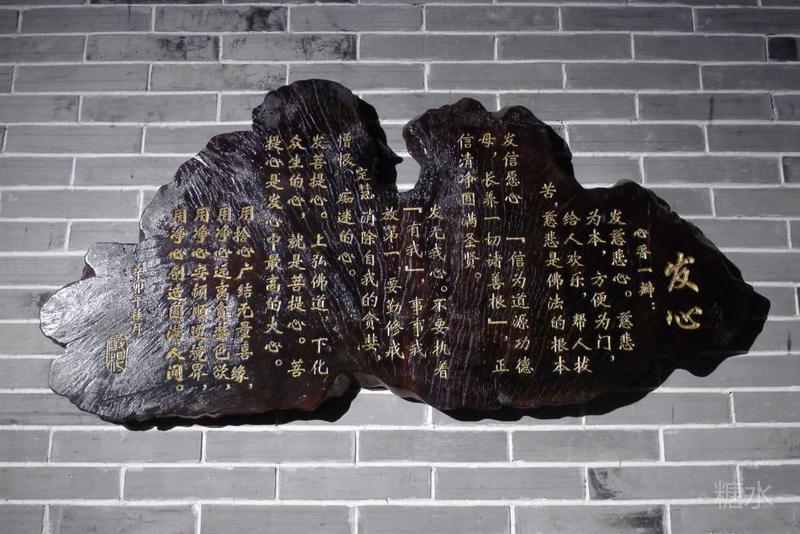 发心
心香一瓣：
发慈悲心。慈悲
为本，方便为门，
给人欢乐，帮人拔
苦，慈悲是佛法的根本
发信愿心 「信为道源功德
母，长养一切诸善根」，正
信清净圆满圣贤。
发无我心。不要执着
「有我」事事我
放第一，要勤修戒
定慧 消除自我的贪婪，
憎恨 痴迷的心。
发菩提心。上弘佛道 下化
众生的心，就是菩提心。菩
提心是发心中最高的大心。
用捨心广结无量喜缘，
用净心远离贪色欲
用净心安顿顺逆境界，
用净心创造圆满人间。
辛卯年桂月
糖水